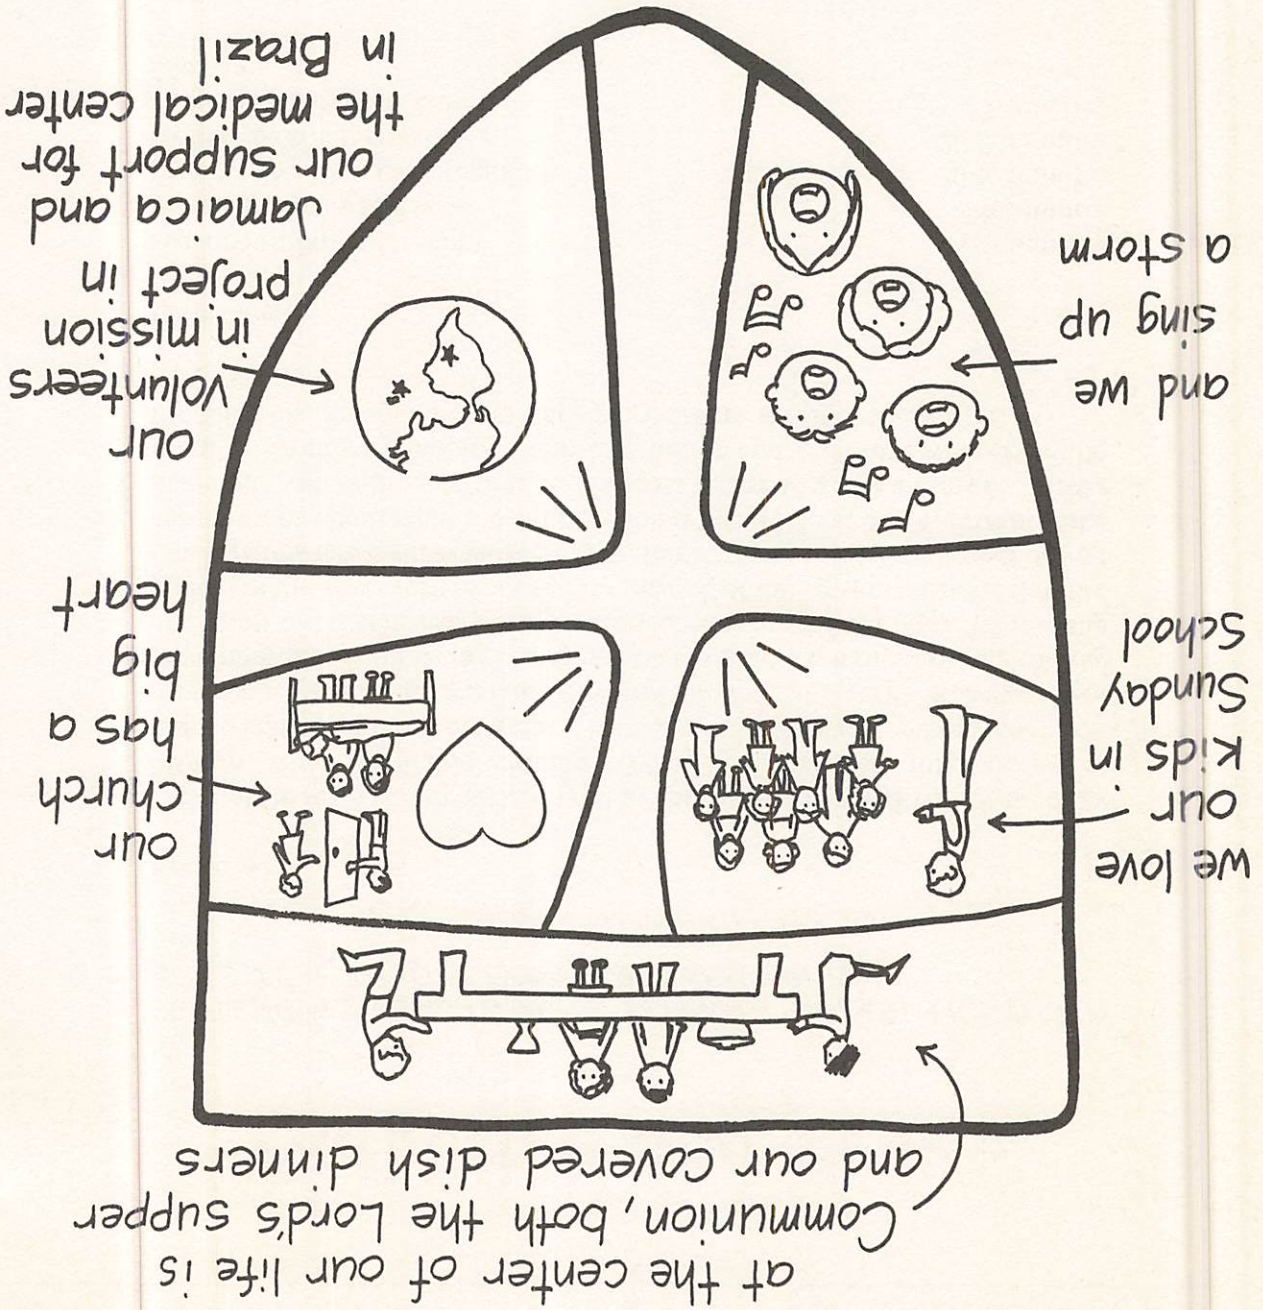 at the center of our life is
Communion, both the Lord's supper
and our covered dish dinners
we love
our
kids in
Sunday
School
our
church
has a
big
heart
and we
sing up
a storm
our
volunteers
in mission
project in
Jamaica and
our support for
the medical center
in Brazil